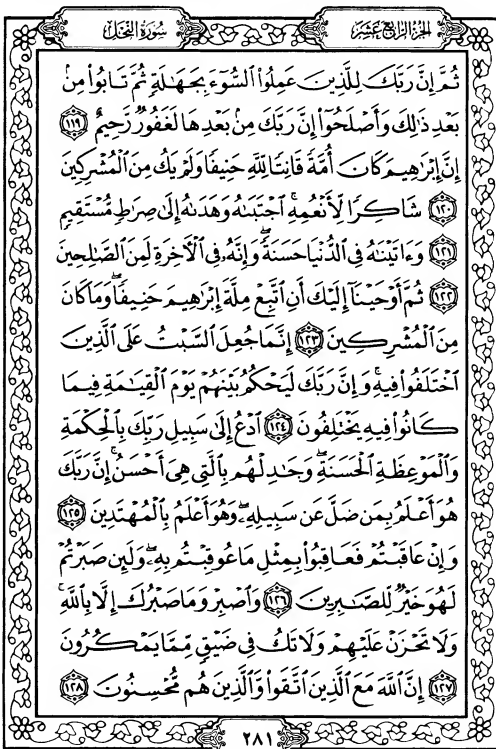 سُورَةُ النَّحۡلِ
الجُزءُ الرَّابِعَ عَشَرَ
ثُمَّ إِنَّ رَبَّكَ لِلَّذِينَ عَمِلُواْ ٱلسُّوٓءَ بِجَهَٰلَةٖ ثُمَّ تَابُواْ مِنۢ
بَعۡدِ ذَٰلِكَ وَأَصۡلَحُوٓاْ إِنَّ رَبَّكَ مِنۢ بَعۡدِهَا لَغَفُورٞ رَّحِيمٌ ١١٩
إِنَّ إِبۡرَٰهِيمَ كَانَ أُمَّةٗ قَانِتٗا لِّلَّهِ حَنِيفٗا وَلَمۡ يَكُ مِنَ ٱلۡمُشۡرِكِينَ
١٢٠ شَاكِرٗا لِّأَنۡعُمِهِۚ ٱجۡتَبَىٰهُ وَهَدَىٰهُ إِلَىٰ صِرَٰطٖ مُّسۡتَقِيمٖ
١٢١ وَءَاتَيۡنَٰهُ فِي ٱلدُّنۡيَا حَسَنَةٗۖ وَإِنَّهُۥ فِي ٱلۡأٓخِرَةِ لَمِنَ ٱلصَّٰلِحِينَ
١٢٢ ثُمَّ أَوۡحَيۡنَآ إِلَيۡكَ أَنِ ٱتَّبِعۡ مِلَّةَ إِبۡرَٰهِيمَ حَنِيفٗاۖ وَمَا كَانَ
مِنَ ٱلۡمُشۡرِكِينَ ١٢٣ إِنَّمَا جُعِلَ ٱلسَّبۡتُ عَلَى ٱلَّذِينَ
ٱخۡتَلَفُواْ فِيهِۚ وَإِنَّ رَبَّكَ لَيَحۡكُمُ بَيۡنَهُمۡ يَوۡمَ ٱلۡقِيَٰمَةِ فِيمَا
كَانُواْ فِيهِ يَخۡتَلِفُونَ ١٢٤ ٱدۡعُ إِلَىٰ سَبِيلِ رَبِّكَ بِٱلۡحِكۡمَةِ
وَٱلۡمَوۡعِظَةِ ٱلۡحَسَنَةِۖ وَجَٰدِلۡهُم بِٱلَّتِي هِيَ أَحۡسَنُۚ إِنَّ رَبَّكَ
هُوَ أَعۡلَمُ بِمَن ضَلَّ عَن سَبِيلِهِۦ وَهُوَ أَعۡلَمُ بِٱلۡمُهۡتَدِينَ ١٢٥
وَإِنۡ عَاقَبۡتُمۡ فَعَاقِبُواْ بِمِثۡلِ مَا عُوقِبۡتُم بِهِۦۖ وَلَئِن صَبَرۡتُمۡ
لَهُوَ خَيۡرٞ لِّلصَّٰبِرِينَ ١٢٦ وَٱصۡبِرۡ وَمَا صَبۡرُكَ إِلَّا بِٱللَّهِۚ
وَلَا تَحۡزَنۡ عَلَيۡهِمۡ وَلَا تَكُ فِي ضَيۡقٖ مِّمَّا يَمۡكُرُونَ
١٢٧ إِنَّ ٱللَّهَ مَعَ ٱلَّذِينَ ٱتَّقَواْ وَّٱلَّذِينَ هُم مُّحۡسِنُونَ ١٢٨
٢٨١